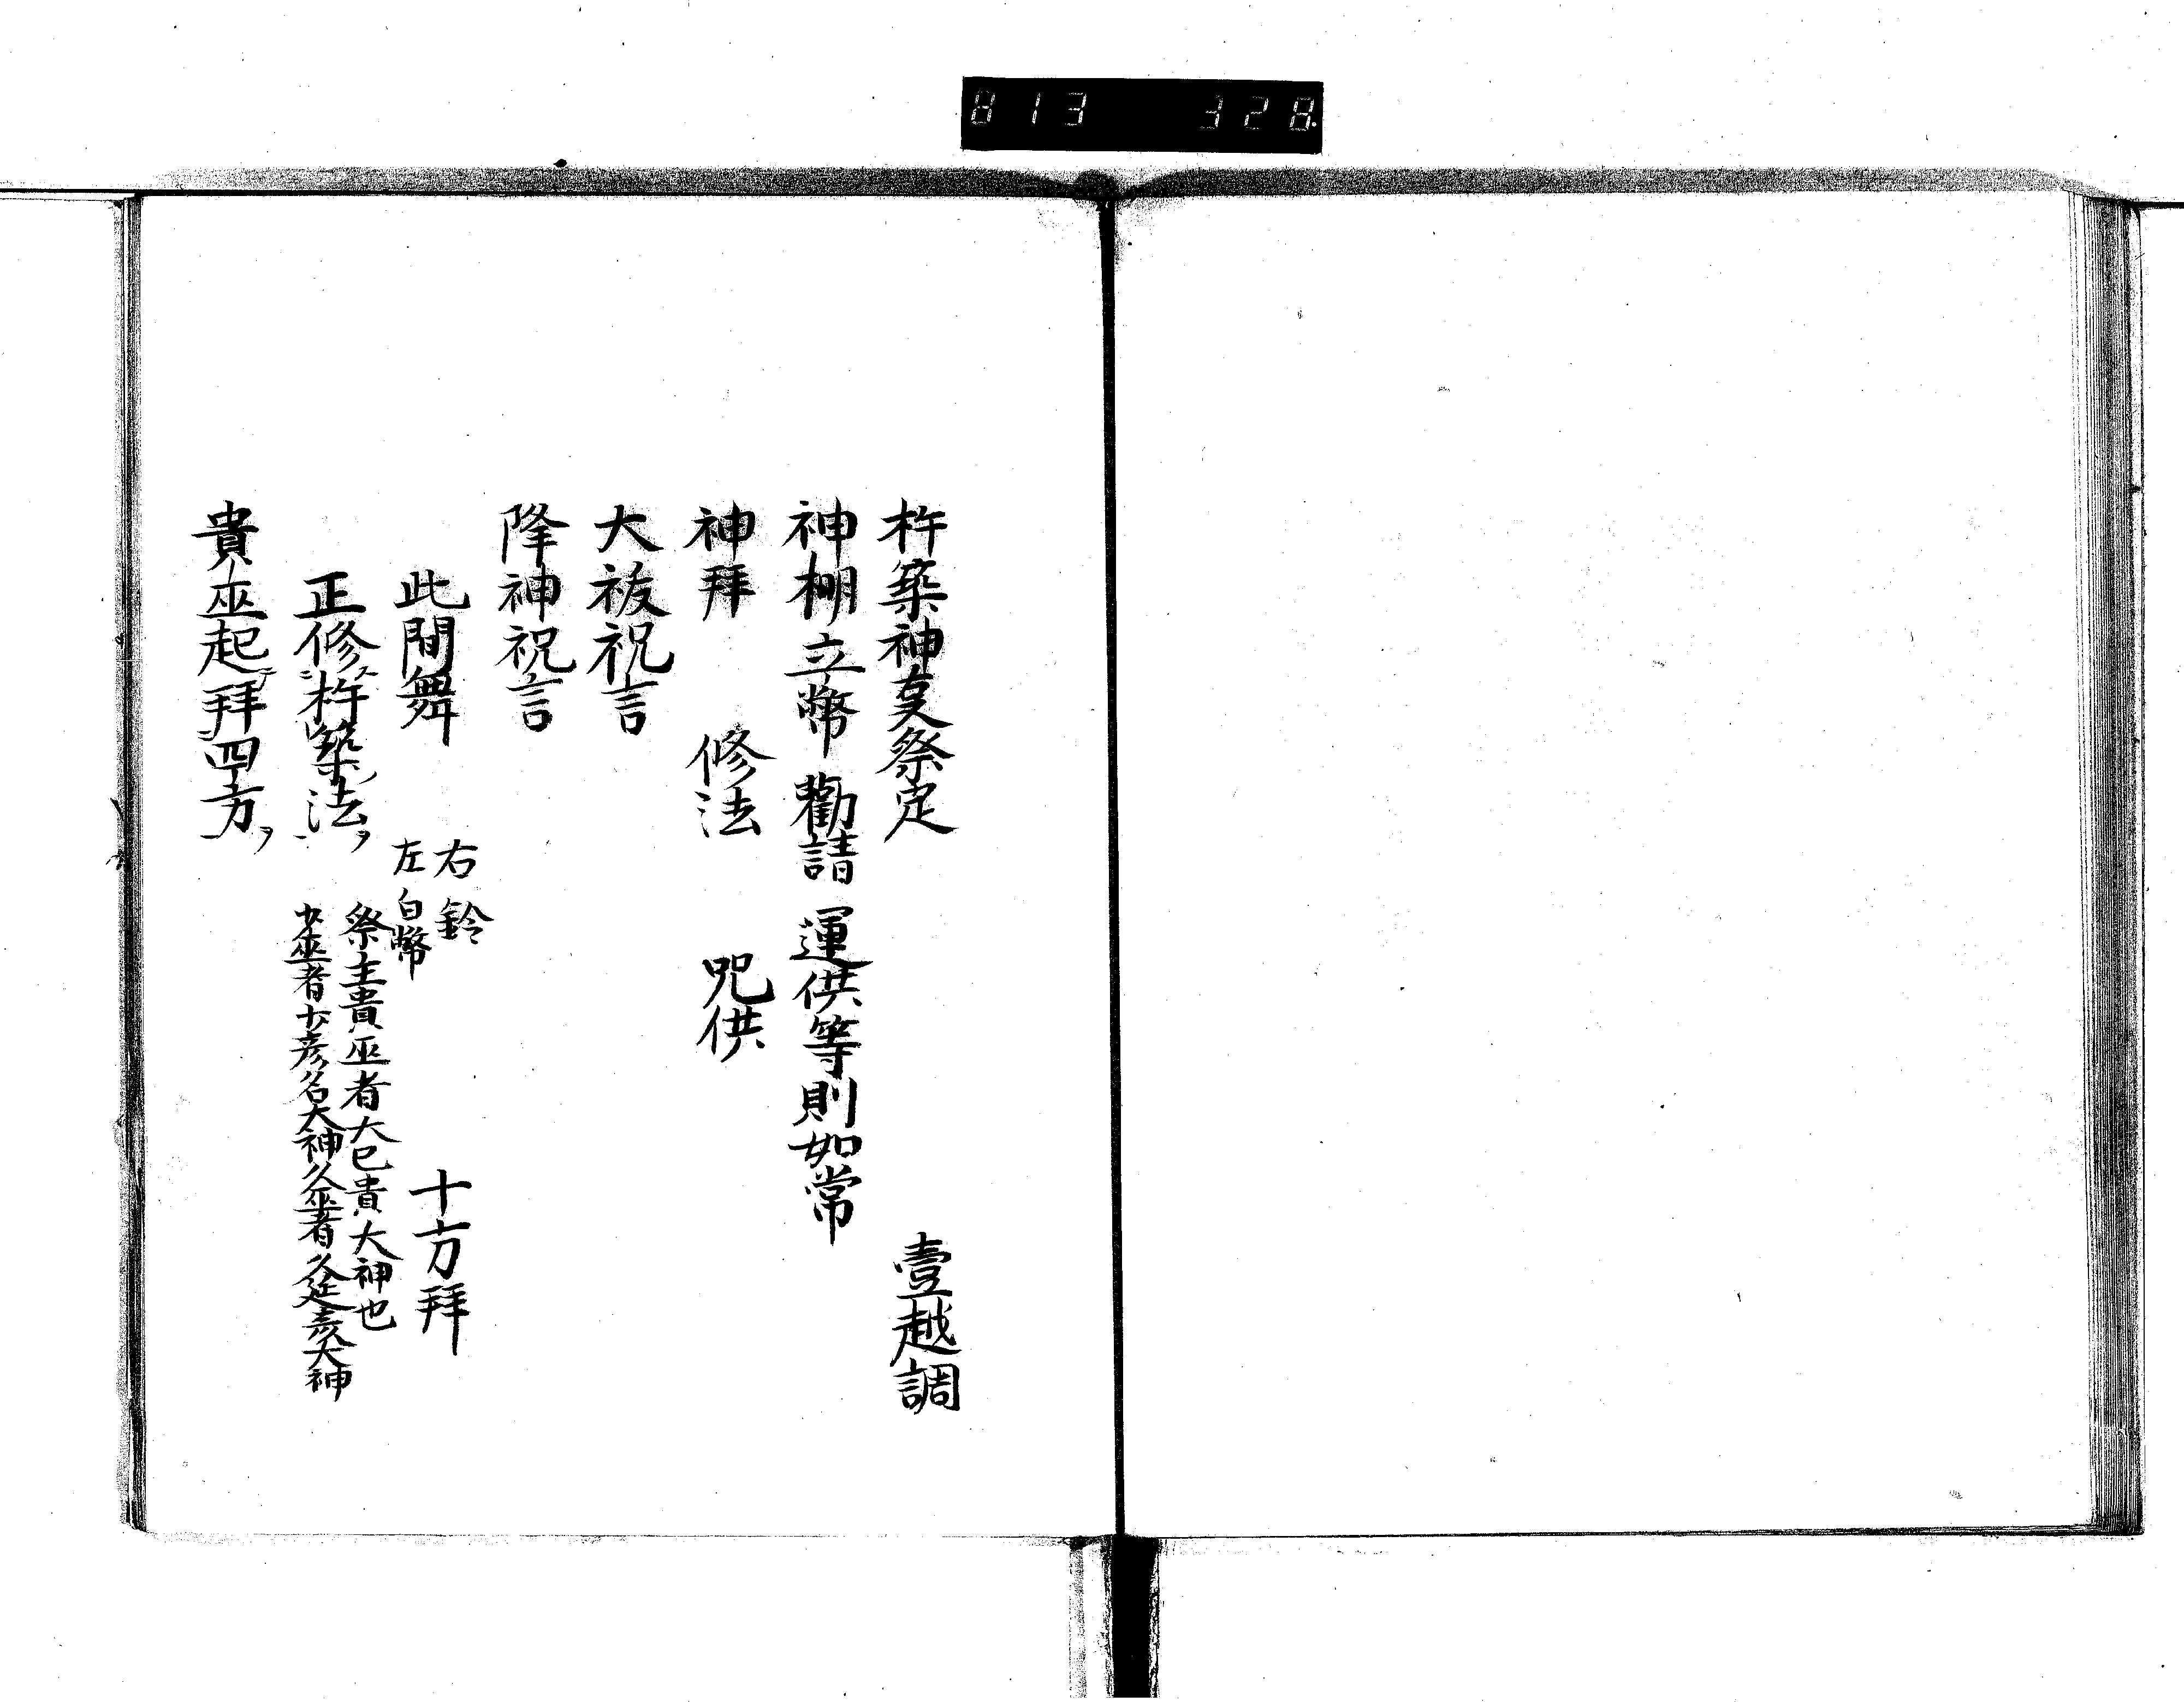 813 328
杵築神㕝祭定 壹越調
神棚立幣 勸請 運供等則如常
神拜 修法 咒供
大祓祝言
降神祝言
此間舞 右鈴 左白幣 十方拜
正修杵築法 祭主貴巫者大已貴大神也
少巫者少彦名大神久巫者久延彦大神
貴巫起拜四方